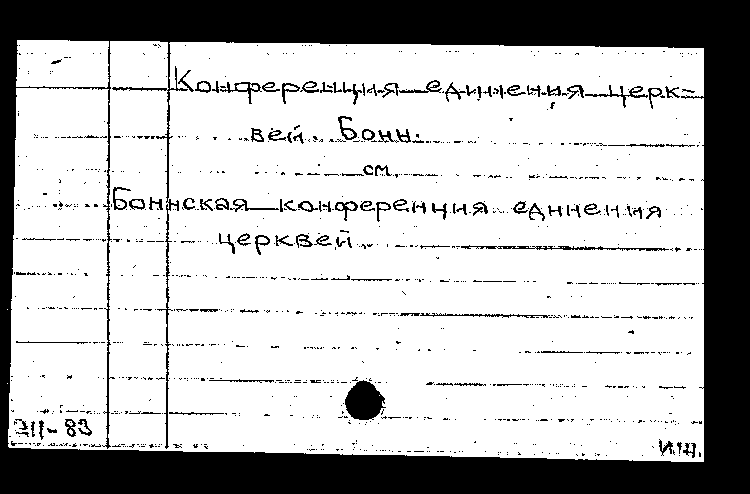 Конференция единения церк=
вей. Бонн.
см.
Боннская конференция единения
церквей.